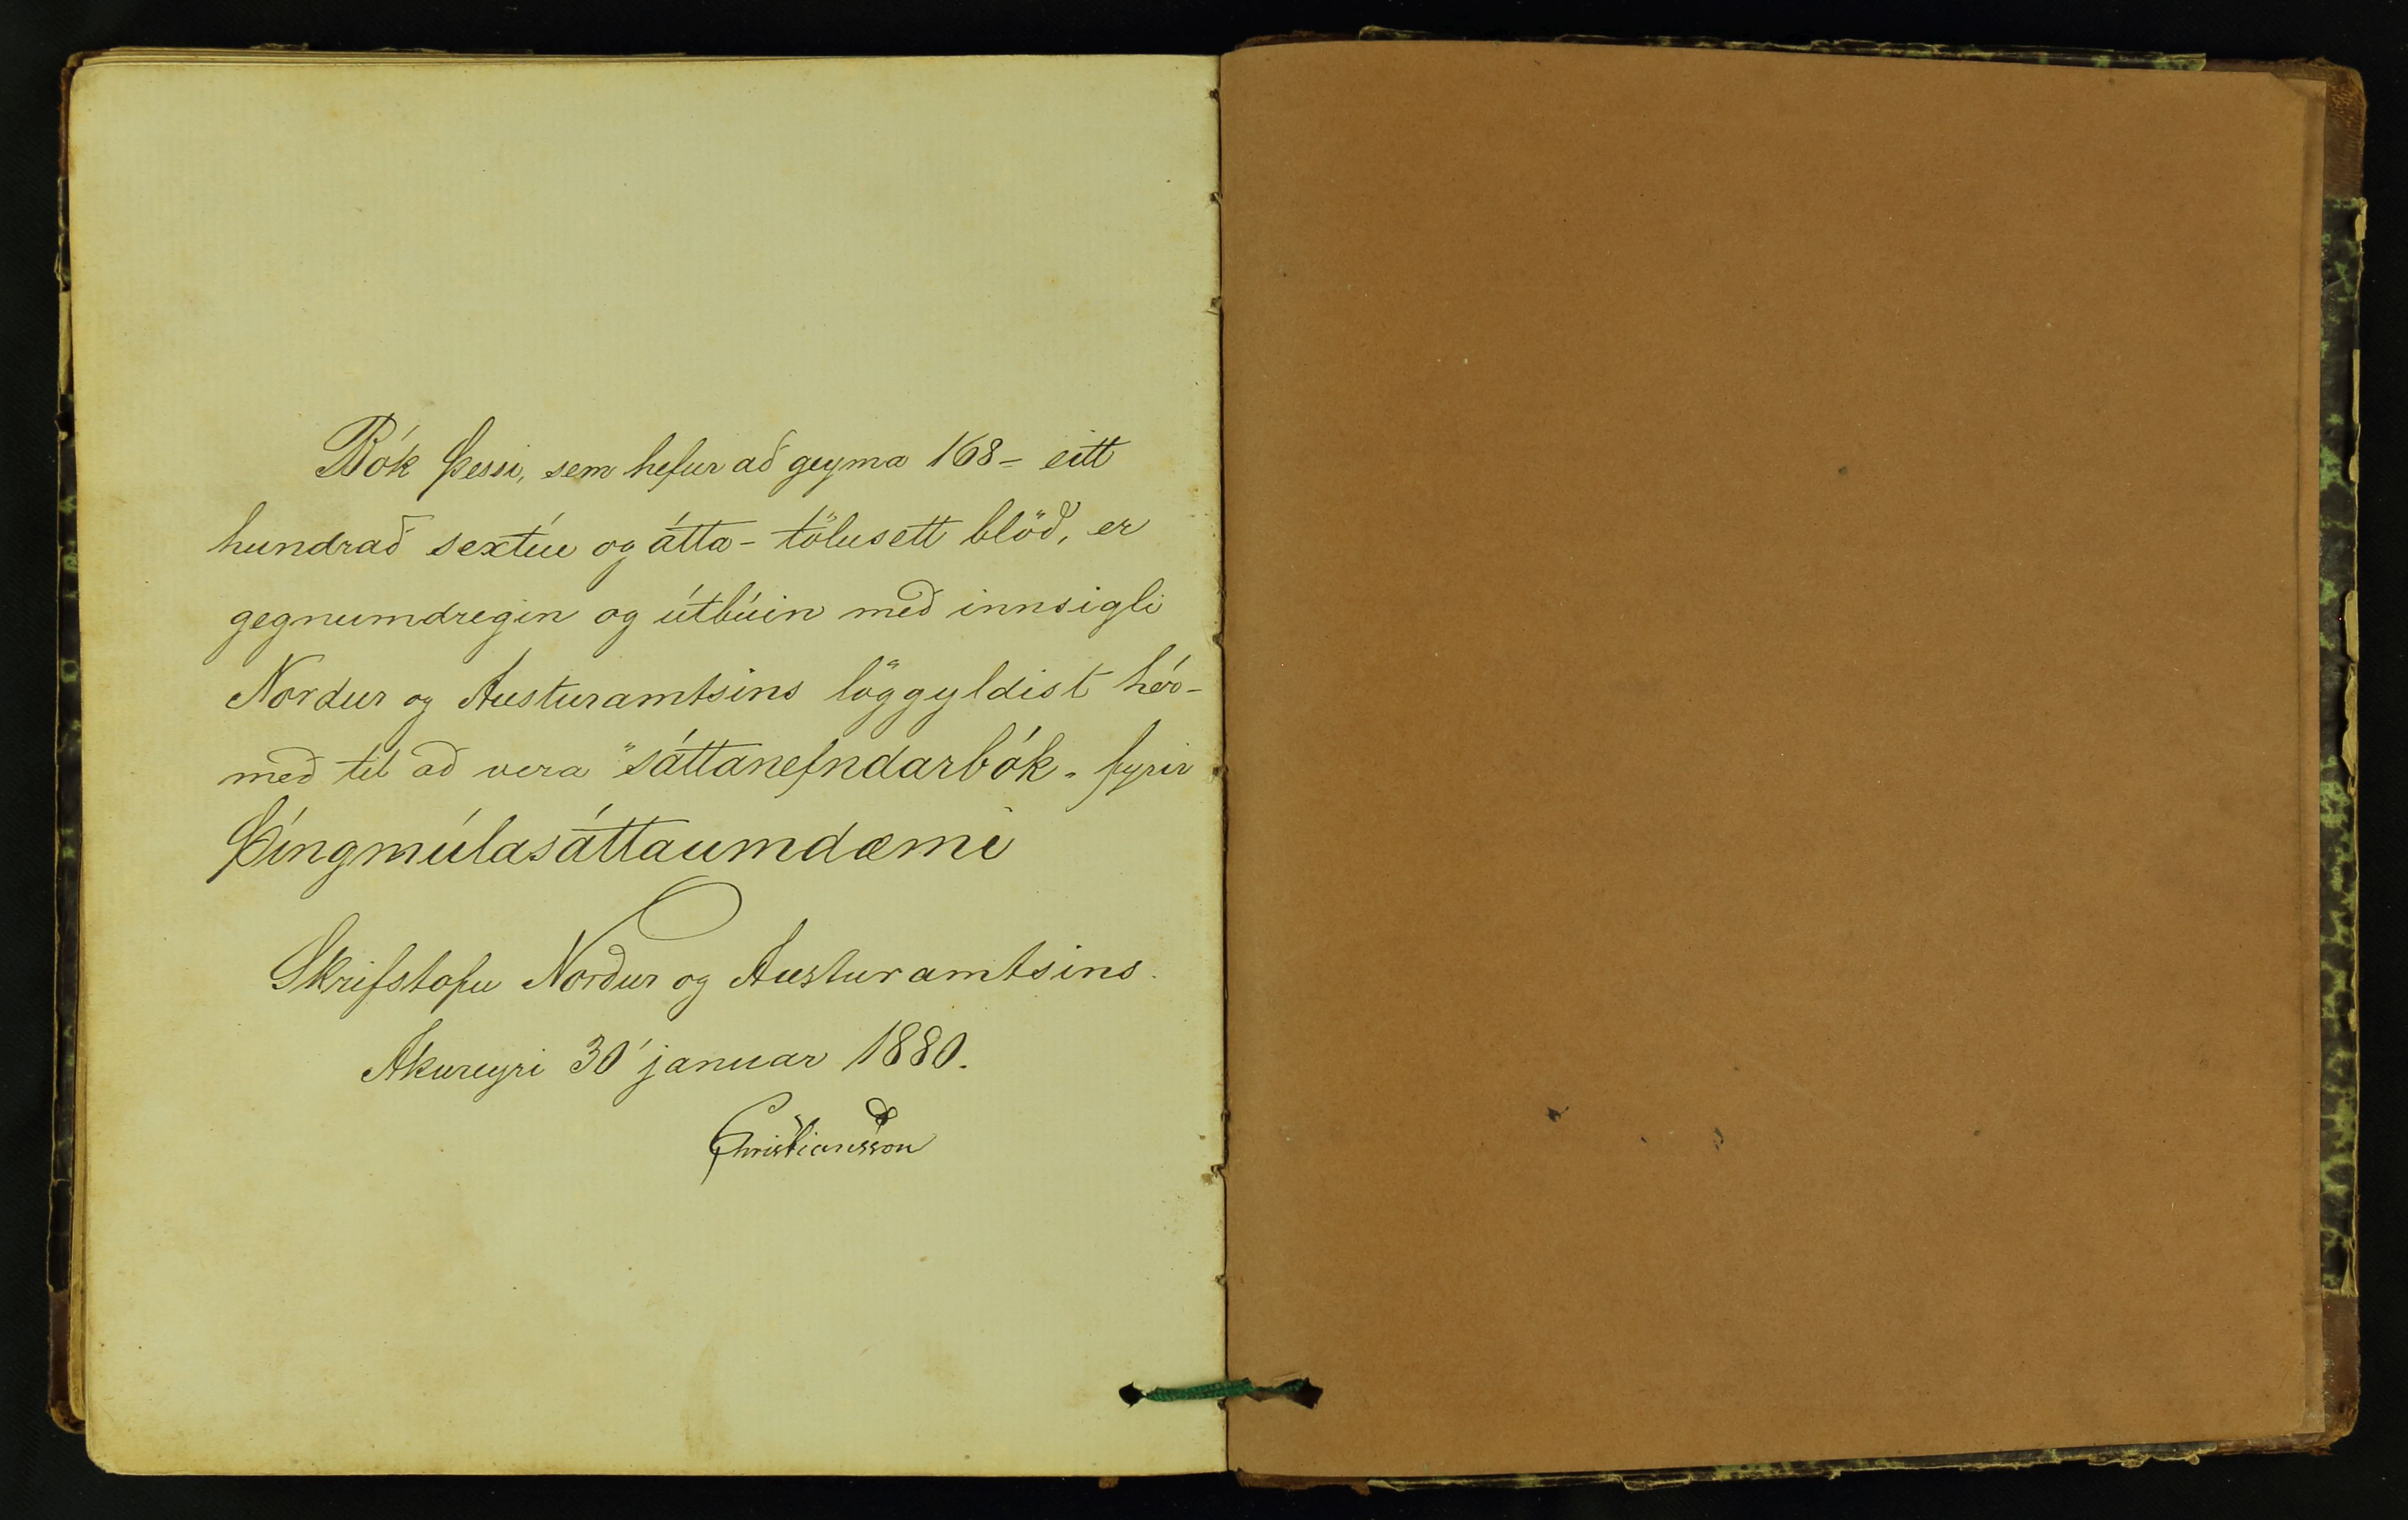 Bók þessi, sem hefur að geyma 168 - eitt
hundrað sextíu og átta - tölusett blöð, er
gegnumdregin og útbúin með innsigli
Nordur og Austuramtsins löggyldist hér-
með til að vera "sáttanefndarbók" fyrir
Þíngmúlasáttaumdæmi
Skrifstofu Norður og Austuramtsins.
Akureyri 30 januar 1880.
Christiansson